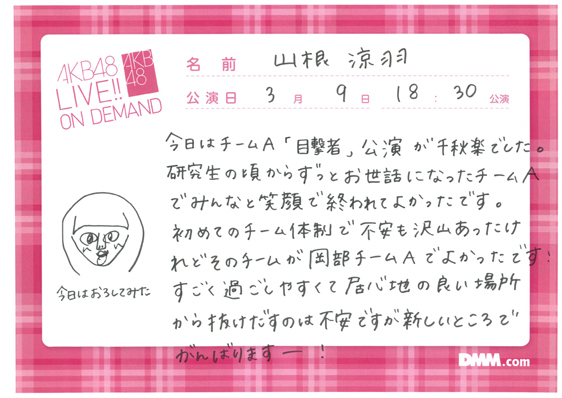 AKB48
LIVE!!
ON DEMAND
AKB
48
名前 山根 涼羽
公演日 3月 9日 18:30 公演
今日はチームA「目撃者」公演が千秋楽でした。
研究生の頃からずっとお世話になったチームA
でみんなと笑顔で終われてよかったです。
初めてのチーム体制で不安も沢山あったけ
れどそのチームが岡部チームAでよかったです!
すごく過ごしやすくて居心地の良い場所
から抜けだすのは不安ですが新しいところで
がんばりますー!
今日はおろしてみた
DMM.com